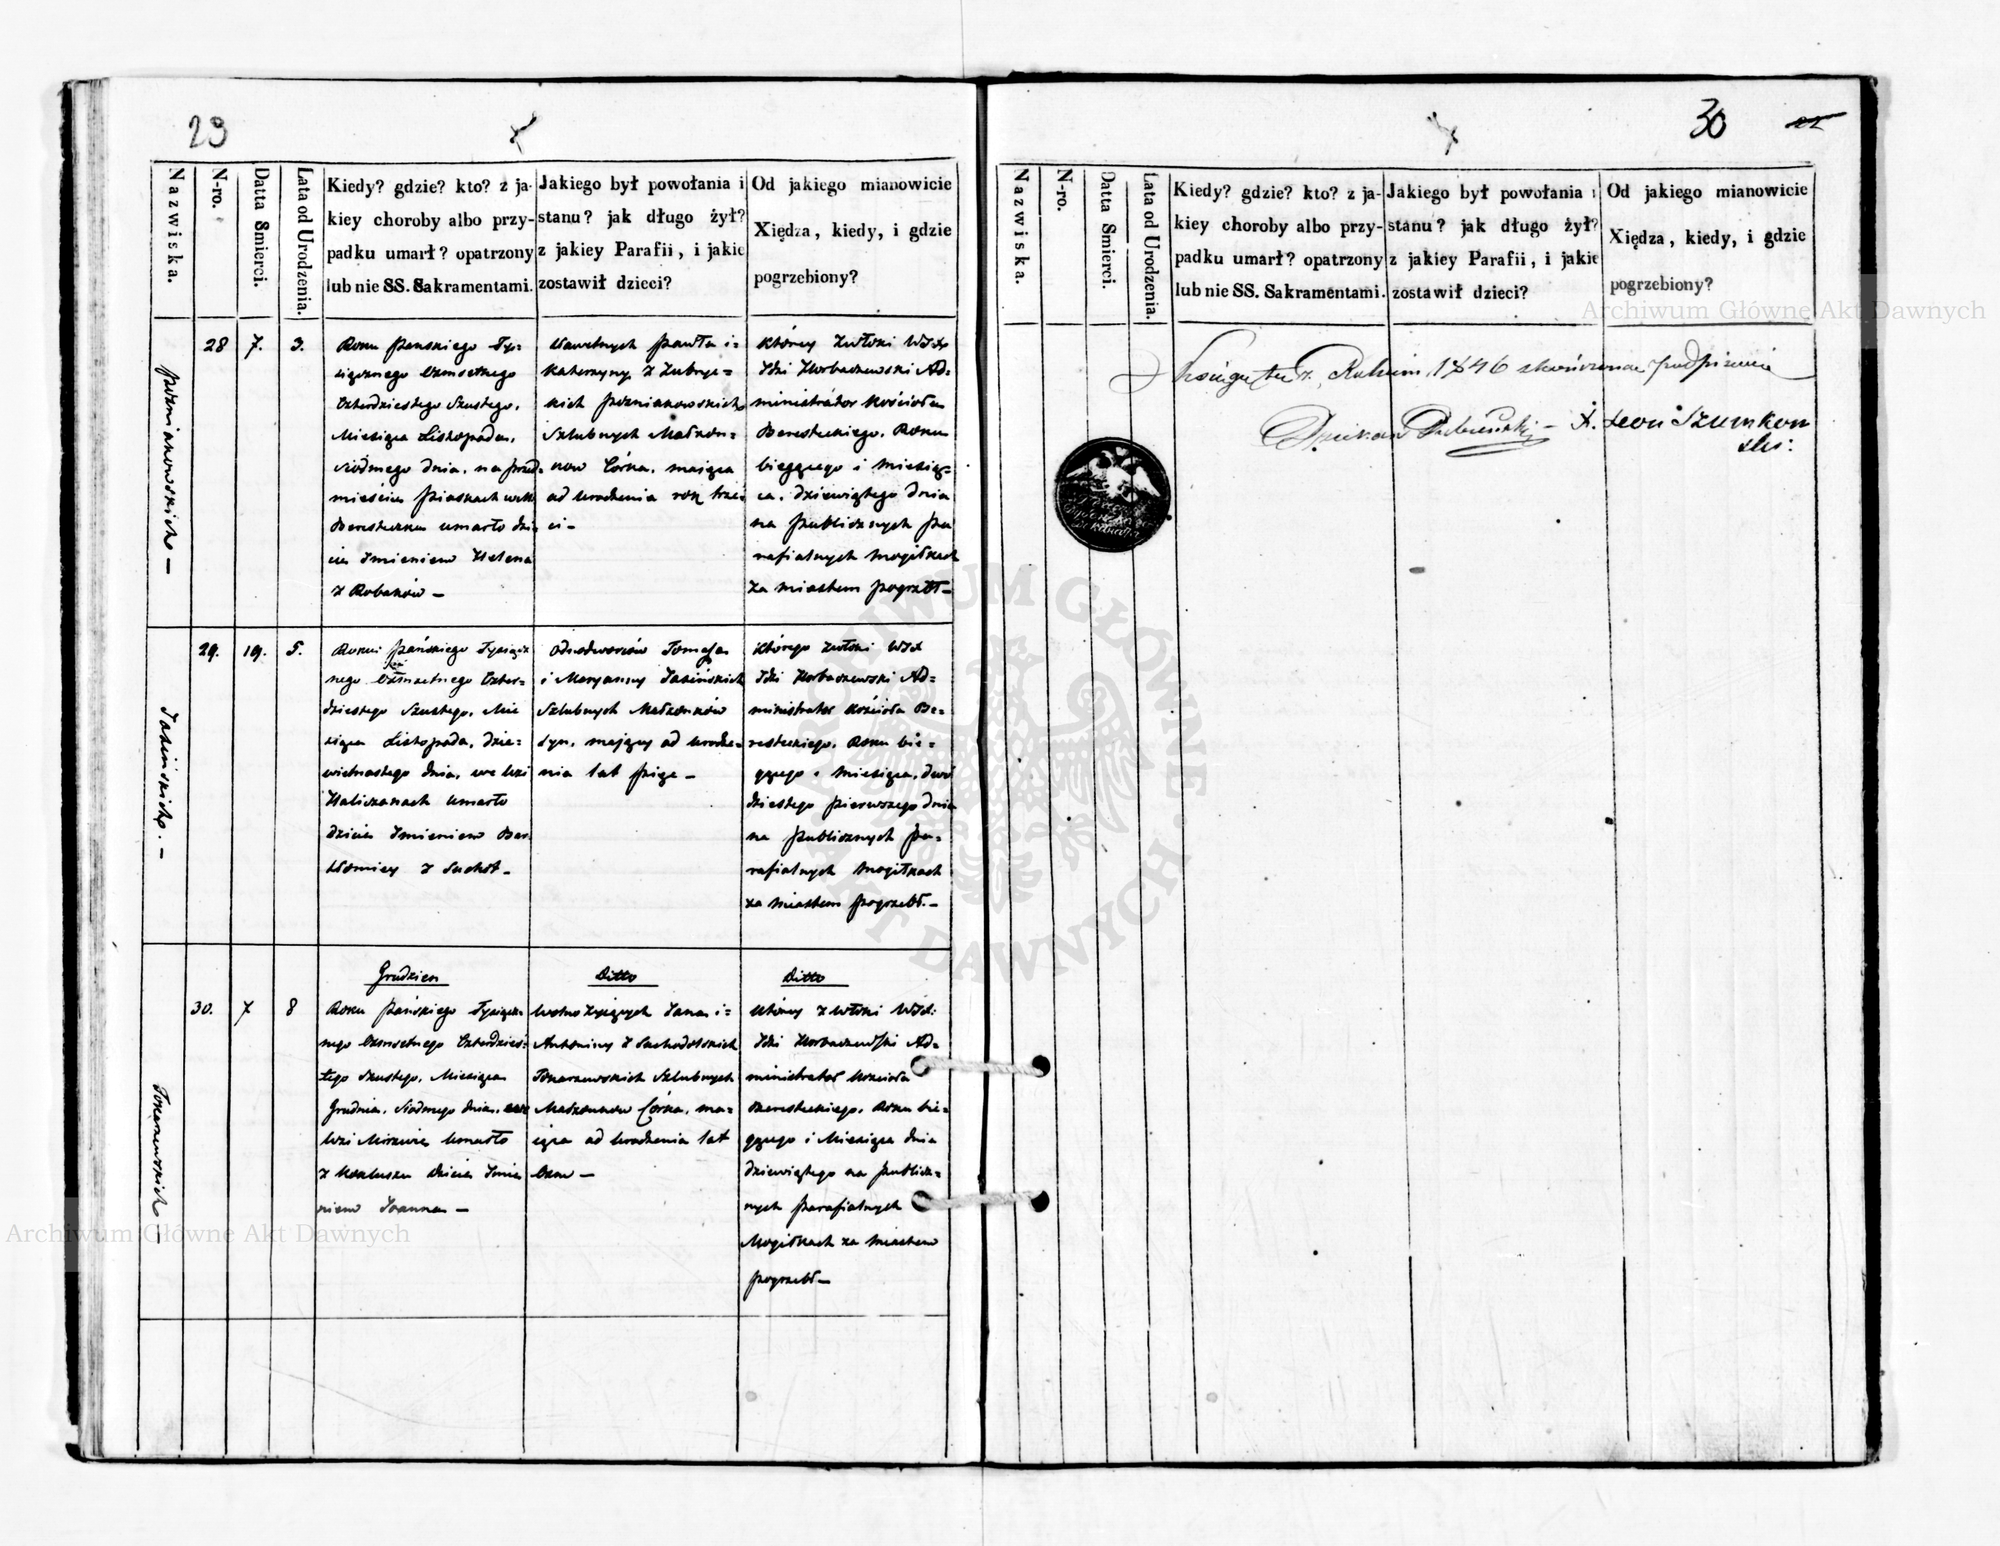 29
Nazwiska.
N-ro.
Data Smierci.
Lata od Urodzenia.
Kiedy? gdzie? kto? z ja-
kiey choroby albo przy-
padku umarł? opatrzony
lub nie SS. Sakramentami.
Jakiego był powołania i
stanu? jak długo żył?
z jakiey Parafii, i jakie
zostawił dzieci?
Od jakiego mianowicie
Xiędza, kiedy, i gdzie
pogrzebiony?
Poźniakowskich —
28
7.
3.
Roku Pańskiego Tys=
iącznego Ośmsetnego
Czterdziestego Szustego,
Miesiąca Listopada,
siódmego dnia, na przed=
mieściu Piaskach
Beresteczka umarło dzi
cie Imieniem Helena
z Robaków —
Pawła i=
Katarzyny z
kich Poźniakowskich
Szlubnych Małżon=
ków Córka, maiąca
od urodzenia rok trze
ci —
Którey zwłoki WJX
Idzi Horbaczewski Ad=
ministrator Kościoła
Beresteckiego, Roku
biegącego i miesią=
ca, dziewiątego dnia
na publicznych pa
rafialnych mogiłkach
za miastem pogrzebł —
Jasińskich. —
29.
19.
5.
Roku Pańskiego Tysiącz
nego Ośmsetnego Czter=
dziestego Szustego, Mie
siąca Listopada, dzie=
wietnastego dnia, we wsi
Haliczanach umarło
dzicie Imieniem Bar
tłomiey z Suchot —
Odnodworców Tomasza
i Maryanny Jasińskich
Szlubnych Małżonków
Syn, maiący od urodze=
nia lat pięć —
Którego zwłoki WJX
Idzi Horbaczewski Ad=
ministrator Kościoła Be=
resteckiego, Roku bie=
gącego i miesiąca, dwu
dziestego pierwszego dnia
na publicznych pa=
rafialnych mogiłkach
za miastem pogrzebł. —
Tokarzewskich —
30.
7
8
Grudzien
Roku Pańskiego Tysiącz=
nego Ośmsetnego Czterdzies=
tego Szustego, Miesiąca
Grudnia, siódmego dnia, we
wsi umarło
z Kokluszu dzicie Imie
niem Joanna —
Ditto
Wolno żyiących Jana i=
Antoniny z Suchodolskich
Tokarzewskich Szlubnych
Małżonków Córka, ma=
iąca od urodzenia lat
Ośm —
Ditto
Którey zwłoki WJX:
Idzi Horbaczewski Ad=
ministrator Kościoła
Beresteckiego, Roku bie=
gącego i Miesiąca dnia
dziewiątego na publicz=
nych parafialnych
Mogiłkach za miastem
pogrzebł —
30
22
Nazwiska.
N-ro.
Data Smierci.
Lata od Urodzenia.
Kiedy? gdzie? kto? z ja-
kiey choroby albo przy-
padku umarł? opatrzony
lub nie SS. Sakramentami.
Jakiego był powołania i
stanu? jak długo żył?
z jakiey Parafii, i jakie
zostawił dzieci?
Od jakiego mianowicie
Xiędza, kiedy, i gdzie
pogrzebiony?
Księga ta z Rokiem 1846 skończona
Dziekan Dubieński — X. Leon Szumkow
ski:
Archiwum Główne Akt Dawnych
Archiwum Główne Akt Dawnych
ARCHIWUM GŁÓWNE AKT DAWNYCH